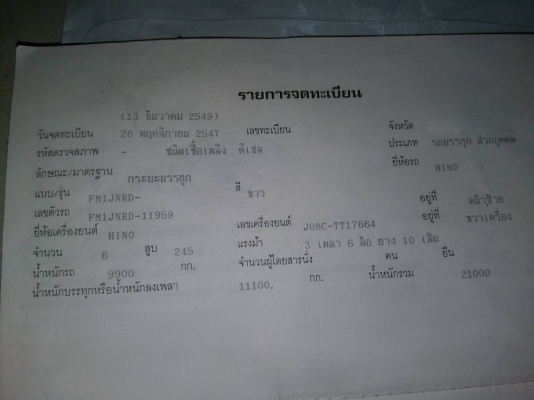 รายการจดทะเบียน
(13 ธันวาคม 2549)
วันจดทะเบียน 26 พฤศจิกายน 2547 เลขทะเบียน จังหวัด
รหัสตรวจสภาพ - ชนิดเชื้อเพลิง ดีเซล ประเภท รถบรรทุก ส่วนบุคคล
ลักษณะ/มาตรฐาน กระบะบรรทุก ยี่ห้อรถ HINO
แบบ/รุ่น FM1JNRD- สี ขาว
เลขตัวรถ FM1JNRD-11959 อยู่ที่
ยี่ห้อเครื่องยนต์ HINO เลขเครื่องยนต์ J08C-TT17664 อยู่ที่ ขวาเครื่อง
จำนวน 6 สูบ 245 แรงม้า 3 เพลา 6 ล้อ ยาง 10 เส้น
น้ำหนักรถ 9900 กก. จำนวนผู้โดยสารนั่ง คน ยืน
น้ำหนักบรรทุกหรือน้ำหนักลงเพลา 11100, กก. น้ำหนักรวม 21000